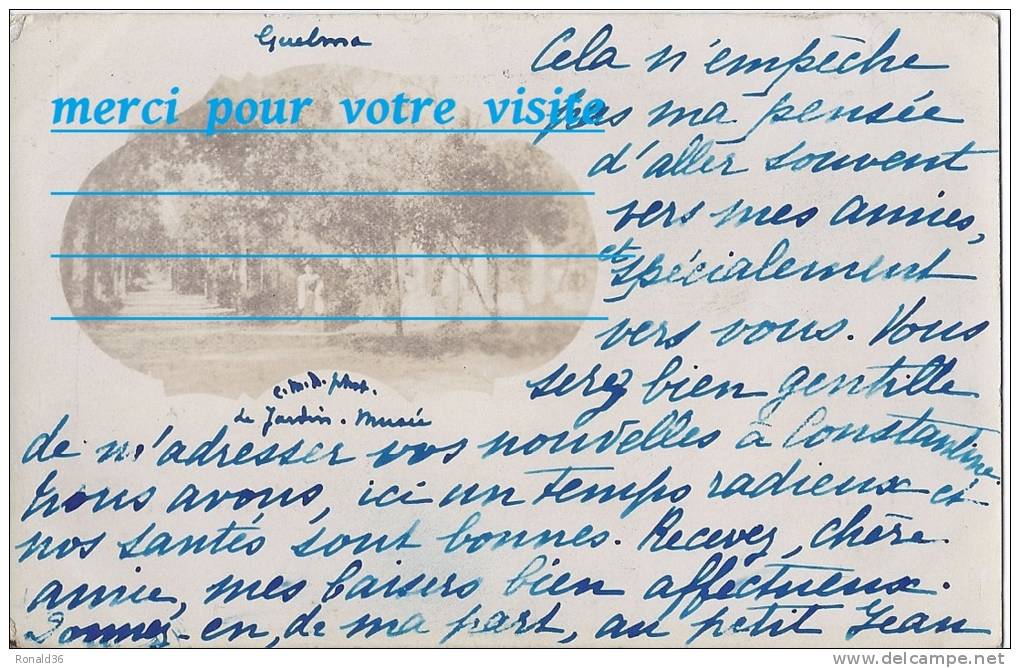 Guelma
merci pour votre visite
c. M. N. phot.
Le Jardin - Musée
Cela n'empêche
pas ma pensée
d'aller souvent
vers mes amies,
et spécialement
vers vous. Vous
serez bien gentille
de m'adresser vos nouvelles à Constantine.
Nous avons, ici un temps radieux et
nos santés sont bonnes. Recevez, chère
amie, mes baisers bien affectueux.
Donnez-en, de ma part, au petit Jean
Ronald36
delcampe.net